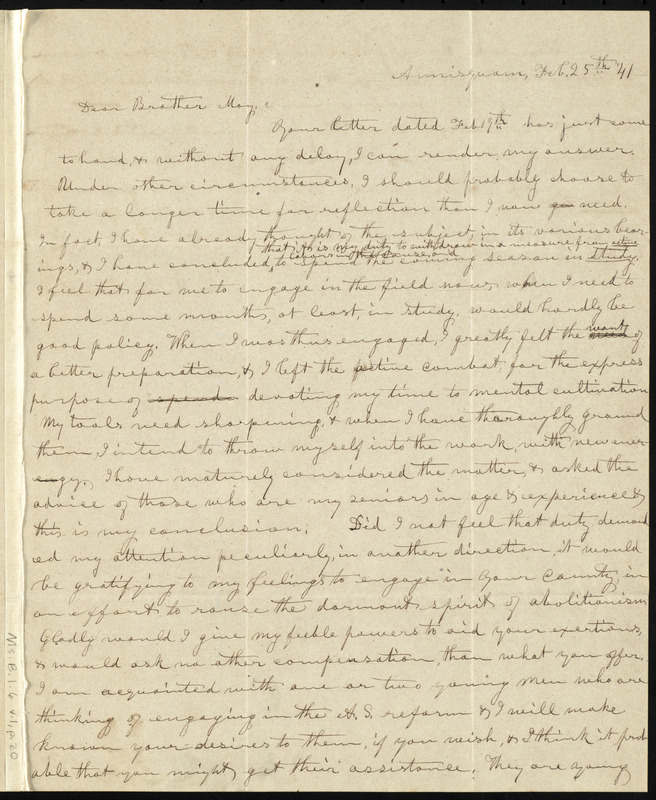 Annisquam, Feb. 25th '41
Dear Brother May,
Your letter dated Feb 19th has just come
to hand, & without any delay, I can render my answer.
Under other circumstances, I should probably choose to
take a longer time for reflection than I now need.
In fact, I have already thought of the subject, in its various bear-
ings, & I have concluded, that it is my duty to withdraw in a measure from active
labors in the cause, and to spend the coming season in study.
I feel that for me to engage in the field now, when I need to
spend some months, at least, in study, would hardly be
good policy. When I was thus engaged, I greatly felt the want of
a better preparation, & I left the active combat, for the express
purpose of spend devoting my time to mental cultivation
My tools need sharpening, & when I have thoroughly ground
them, I intend to throw myself into the work, with new ener-
gy. I have maturely considered the matter, & asked the
advice of those who are my seniors in age & experience &
this is my conclusion. Did I not feel that duty demand
ed my attention peculiarly, in another direction, it would
be gratifying to my feelings to engage in your County, in
an effort to rouse the dormant spirit of abolitionism
Gladly would I give my feeble powers to aid your exertions,
& would ask no other compensation, than what you offer.
I am acquainted with one or two young men who are
thinking of engaging in the A. S. reform & I will make
known your desires to them, if you wish, & I think it prob
able that you might get their assistance. They are young
Ms. B. 1.6 v1, p. 20